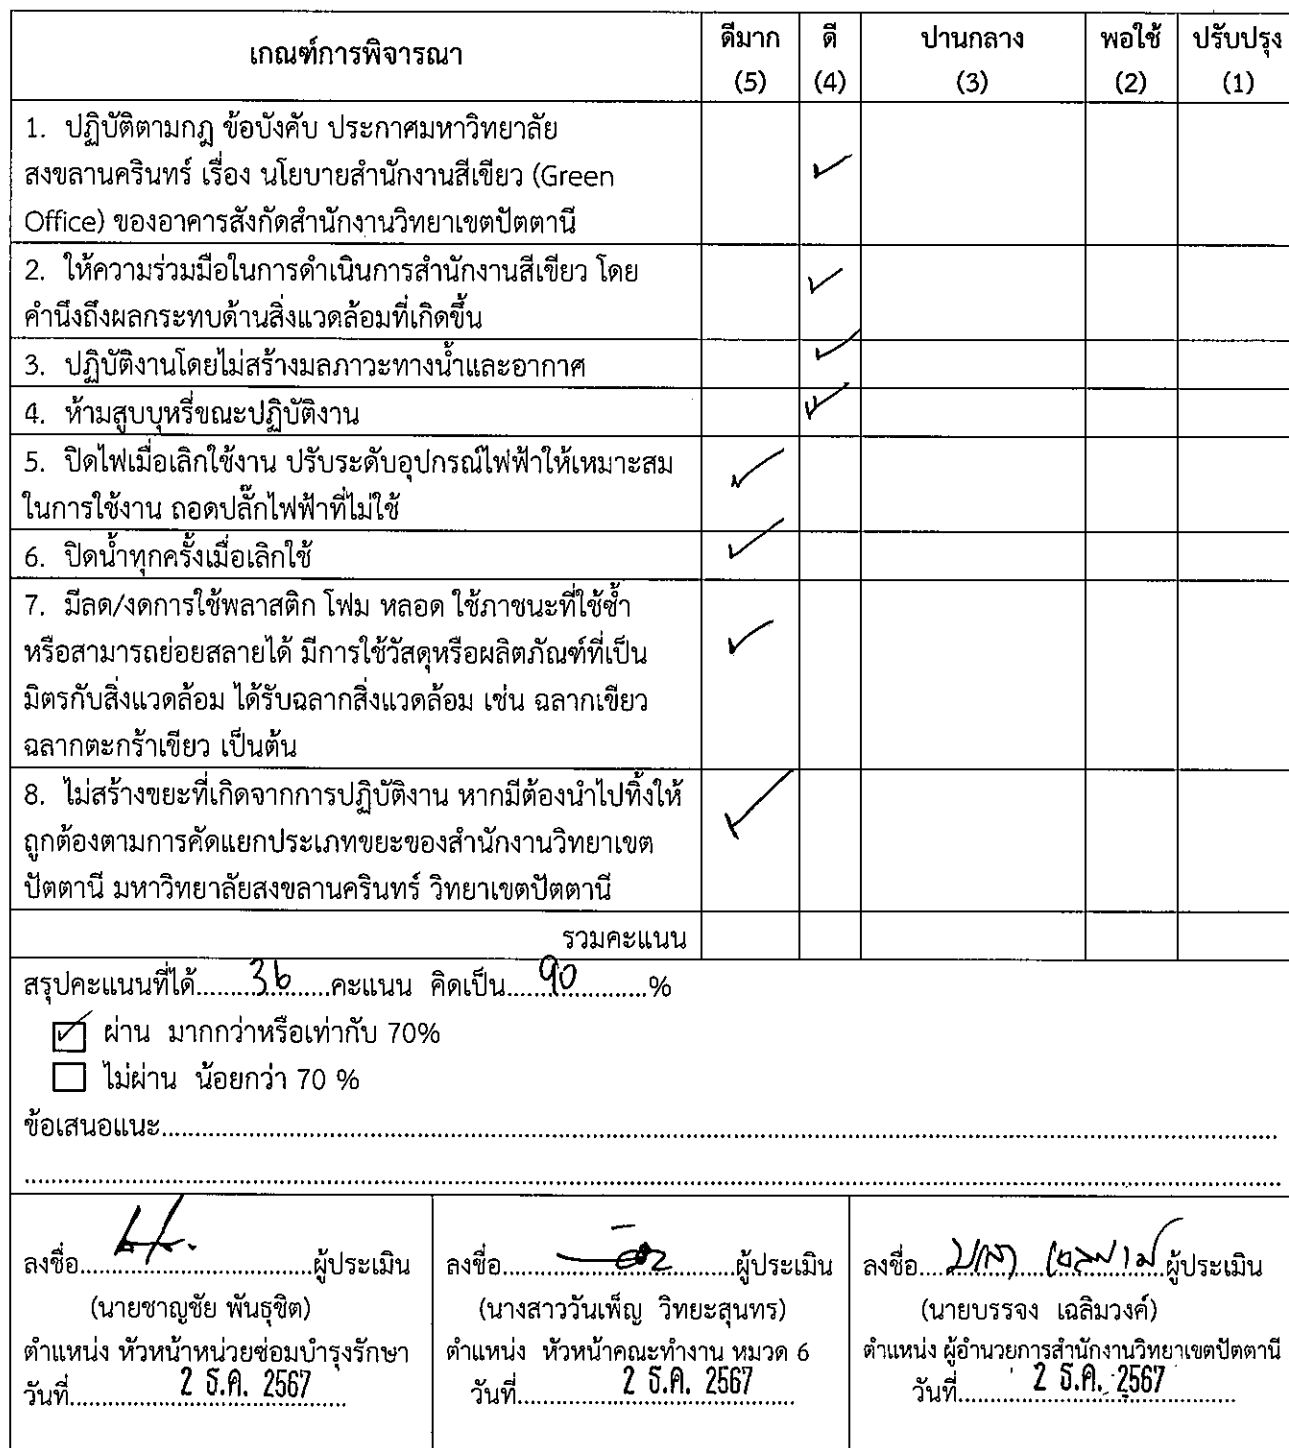 เกณฑ์การพิจารณา ดีมาก ดี ปานกลาง พอใช้ ปรับปรุง
(5) (4) (3) (2) (1)
1. ปฏิบัติตามกฎ ข้อบังคับ ประกาศมหาวิทยาลัย
สงขลานครินทร์ เรื่อง นโยบายสำนักงานสีเขียว (Green
Office) ของอาคารสังกัดสำนักงานวิทยาเขตปัตตานี
2. ให้ความร่วมมือในการดำเนินการสำนักงานสีเขียว โดย
คำนึงถึงผลกระทบด้านสิ่งแวดล้อมที่เกิดขึ้น
3. ปฏิบัติงานโดยไม่สร้างมลภาวะทางน้ำและอากาศ
4. ห้ามสูบบุหรี่ขณะปฏิบัติงาน
5. ปิดไฟเมื่อเลิกใช้งาน ปรับระดับอุปกรณ์ไฟฟ้าให้เหมาะสม
ในการใช้งาน ถอดปลั๊กไฟฟ้าที่ไม่ใช้
6. ปิดน้ำทุกครั้งเมื่อเลิกใช้
7. มีลด/งดการใช้พลาสติก โฟม หลอด ใช้ภาชนะที่ใช้ซ้ำ
หรือสามารถย่อยสลายได้ มีการใช้วัสดุหรือผลิตภัณฑ์ที่เป็น
มิตรกับสิ่งแวดล้อม ได้รับฉลากสิ่งแวดล้อม เช่น ฉลากเขียว
ฉลากตะกร้าเขียว เป็นต้น
8. ไม่สร้างขยะที่เกิดจากการปฏิบัติงาน หากมีต้องนำไปทิ้งให้
ถูกต้องตามการคัดแยกประเภทขยะของสำนักงานวิทยาเขต
ปัตตานี มหาวิทยาลัยสงขลานครินทร์ วิทยาเขตปัตตานี
รวมคะแนน
สรุปคะแนนที่ได้.........36.......คะแนน คิดเป็น.....90.............%
☑ ผ่าน มากกว่าหรือเท่ากับ 70%
☐ ไม่ผ่าน น้อยกว่า 70 %
ข้อเสนอแนะ..........
ลงชื่อ..........ผู้ประเมิน ลงชื่อ..........ผู้ประเมิน ลงชื่อ..........ผู้ประเมิน
(นายชาญชัย พันธุชิต) (นางสาววันเพ็ญ วิทยะสุนทร) (นายบรรจง เฉลิมวงค์)
ตำแหน่ง หัวหน้าหน่วยซ่อมบำรุงรักษา ตำแหน่ง หัวหน้าคณะทำงาน หมวด 6 ตำแหน่ง ผู้อำนวยการสำนักงานวิทยาเขตปัตตานี
วันที่.....2 ธ.ค. 2567..... วันที่.....2 ธ.ค. 2567..... วันที่.....2 ธ.ค. 2567.....